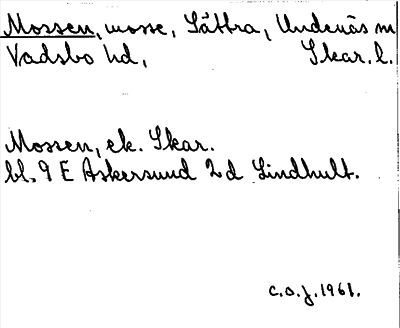 Mossen, mosse, Sättra, Undenäs sn
Vadsbo hd, Skar. l.
Mossen, ek. Skar.
bl. 9 E Askersund 2 d Lindhult.
c.o.j. 1961.